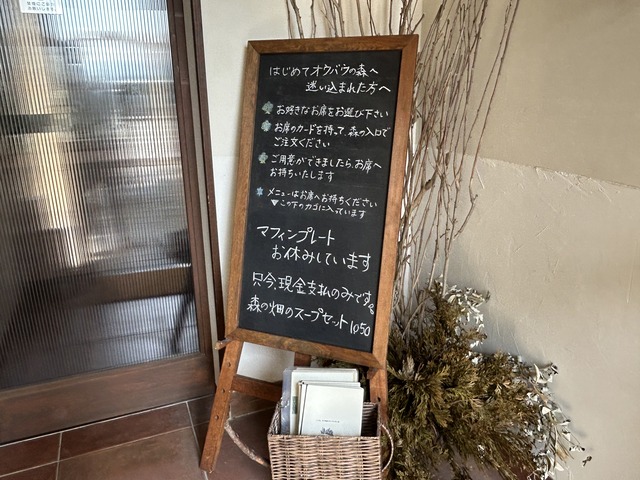 はじめてオクバウの森へ
迷い込まれた方へ
お好きなお席をお選び下さい
お席のカードを持って、森の入口で
ご注文ください
ご用意ができましたら、お席へ
お持ちいたします
メニューはお席へお持ちください
▼この下のカゴに入っています
マフィンプレート
お休みしています
只今、現金支払のみです。
森の畑のスープセット1050